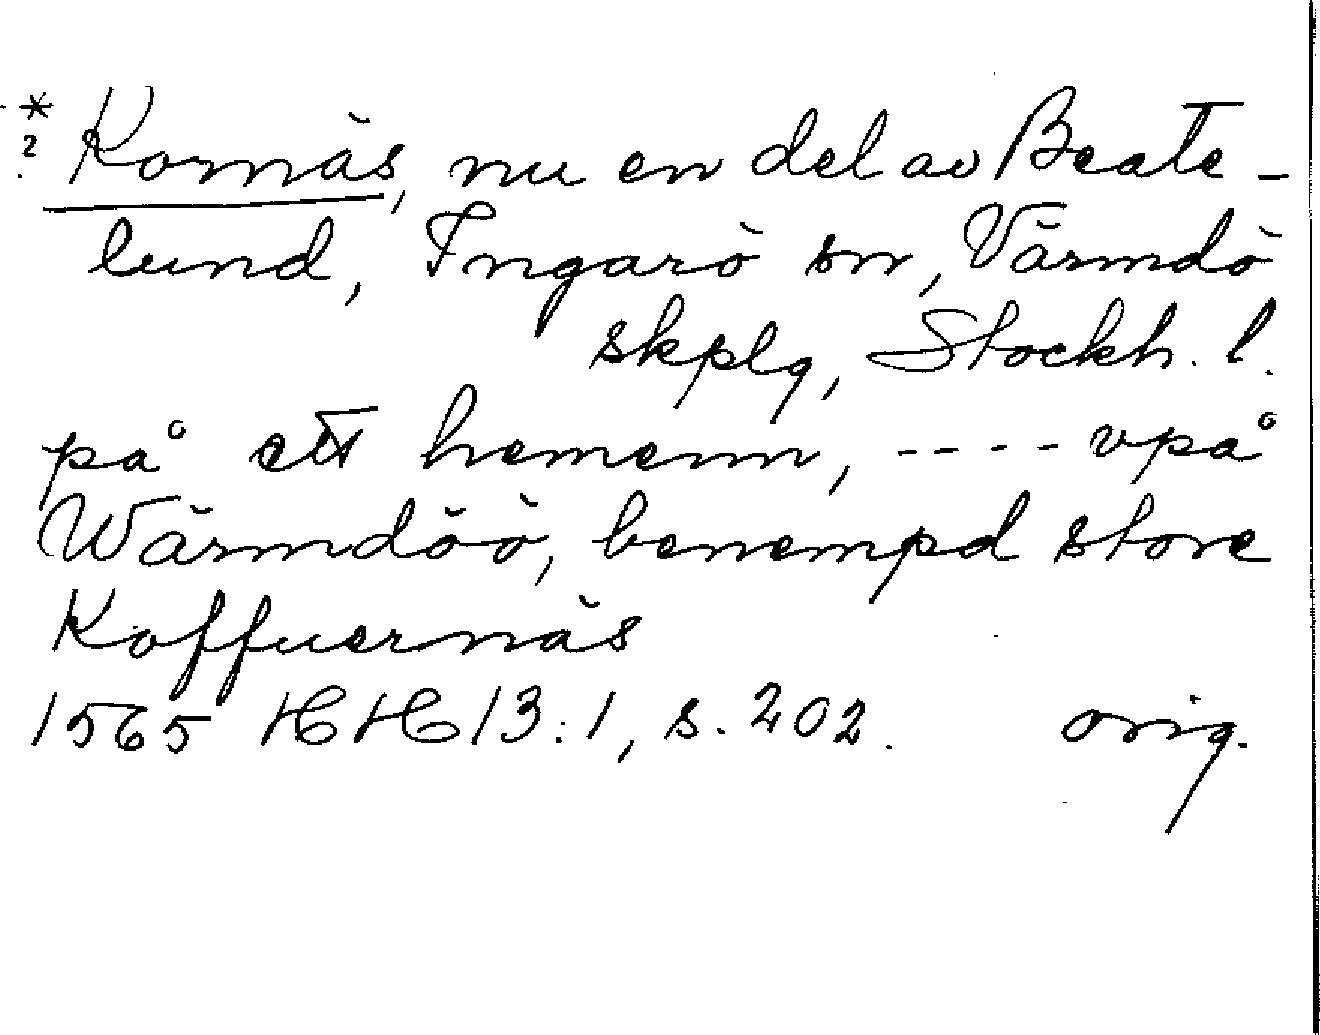 *
? Kornäs, nu en del av Beate-
lund, Ingarö sn, Värmdö
skplg, Stockh. l.
på ett hemenn, ---- vpå
Wärmdöö, benempd store
Koffuernäs
1565 HH 13:1, s. 202. orig.